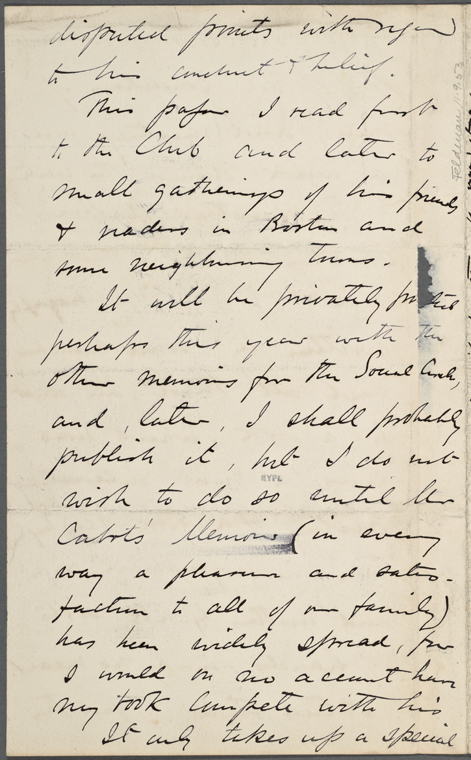 disputed points with regard
to his conduct & belief.
This paper I read first
to the Club and later to
small gatherings of his friends
& readers in Boston and
some neighbouring towns.
It will be privately printed
perhaps this year with the
other memoirs for the Social Circle,
and, later, I shall probably
publish it, but I do not
wish to do so until Mr
Cabot's Memoir (in every
way a pleasure and satis-
faction to all of our family)
has been widely spread, for
I would on no account have
my book compete with his
It only takes up a special
NYPL
Feldman 11.9.53